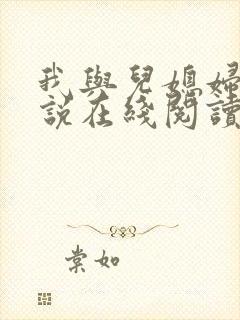 我與兒媳婦
說在綫閱讀
棠如